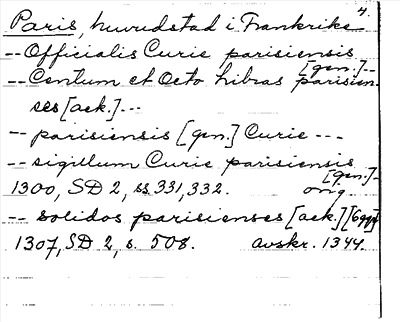 4.
Paris, huvudstad i Frankrike
-- Officialis Curie parisiensis
[gen.]--
-- Centum et Octo libras parisien-
ses [ack.] ---
-- parisiensis [gen.] Curie ---
-- sigillum Curie parisiensis
[gen.]-
1300, SD 2, ss. 331, 332. orig.
-- solidos parisienses [ack.]
1307, SD 2, s. 508. avskr. 1344.